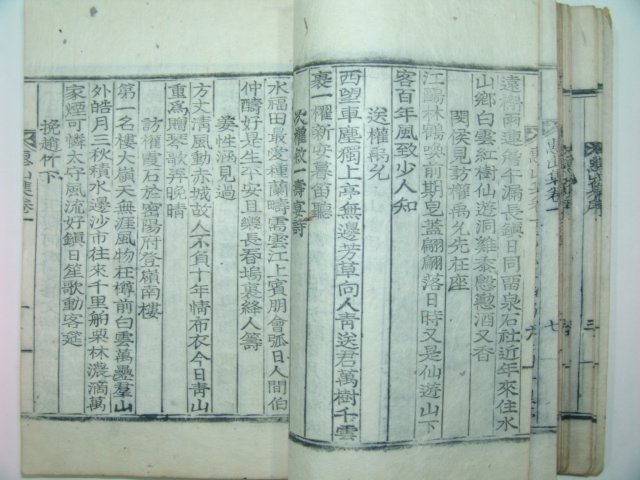 遠樹雨過階千漏長鎭日同留泉石社近年來住水
山鄕白雲紅樹仙遊洞雞黍慇懃酒又香
閔侯見訪權禹允先在座
江鷗林鶴喚前期皂蓋翩翩落日時又是仙遊山下
客百年風致少人知
送權禹允
西望車塵獨上亭無邊芳草向人靑送君萬樹千雲
裏一擢新安尋笛聽
次權敬一壽宴詩
水福田最愛種蘭疇需雲江上賓朋會弧日人間伯
仲疇好是生平安且樂長春塢裏絳人籌
姜性涵見過
方丈淸風動赤城故人不負十年情布衣今日靑山
重爲贈琴歌碎晚晴
訪權霞石於密陽府登嶺南樓
第一名樓大嶺天無涯風物在樽前白雲萬疊羣山
外皓月三秋積水邊沙市往來千里舶栗林濃滴萬
家煙可憐太守風流好鎭日笙歌動客筵
挽趙竹下
惠山集卷一
七
三